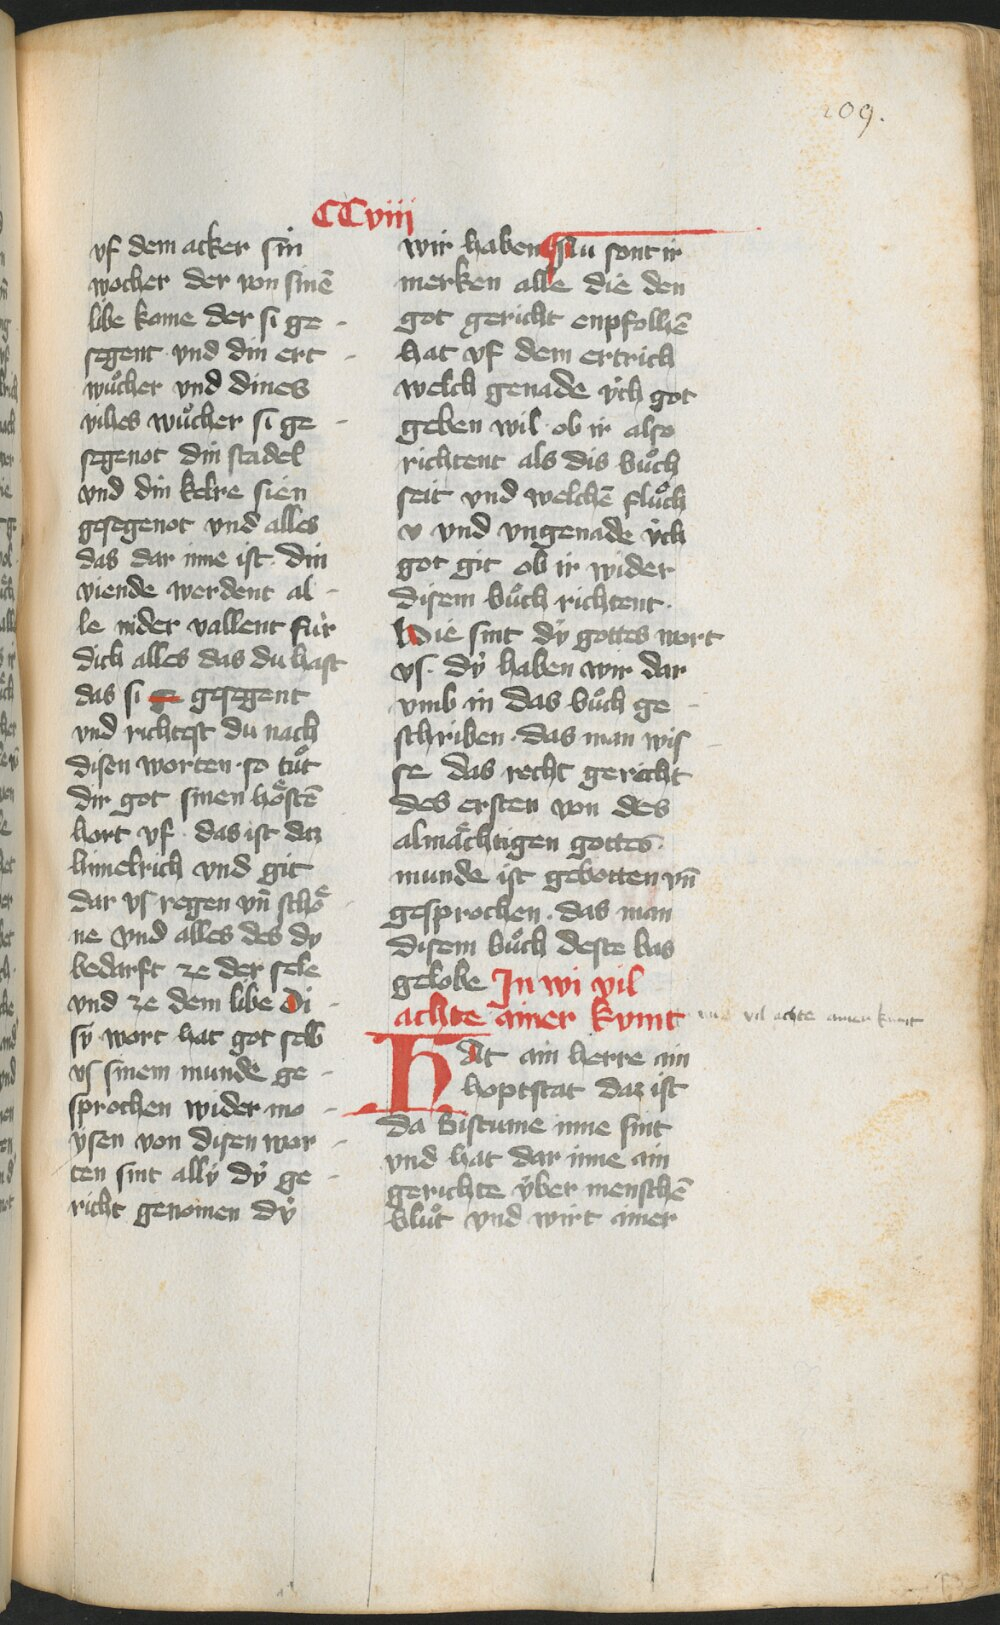 209.
CCviii
vf dem acker sin
wocher der von sinē
libe kome der si ge -
segent vnd din ert -
wůcher vnd dines
vihes wůcher si ge -
segenot din stadel
vnd din kelre sien
gesegenot vnd alles
das dar inne ist · din
viende werdent al -
le nider vallent fúr
dich alles das du hast
das si gesegent
vnd richtest du nach
disen worten · so tůt
dir got sinen hoͤstē
hort vf · das ist daz
himelrich vnd git
dar vs regen vn̄ schoͤ -
ne vnd alles des dv
bedarft ze der sele
vnd ze dem libe Di -
sẏ wort hat got selb
vs sinem munde ge -
sprochen wider mo -
ẏsen von disen wor -
ten sint allẏ dẏ ge -
richt genomen dẏ
wir haben Nu sont ir
merken alle die den
got gericht enpfolhē
hat vf dem ertrich
welch genade v́ch got
geben wil · ob ir also
richtent als dis bůch
seit vnd welchē flůch
v vnd vngenade v́ch
got git ob ir wider
disem bůch richtent ·
Die sint dẏ gottes wort
vs · dẏ haben wir dar
vmb in das bůch ge -
schriben · das man wis -
se das recht gericht
des ersten von des
almaͤchtigen gottes
munde ist gebotten vn̄
gesprochen · das man
disem bůch deste bas
gelobe In wi vil
achte ainer kvmt
vil achte ainer kumt
HAt ain herre ain
hoptstat daz ist
da bistume inne sint
vnd hat dar inne ain
gerichte v́ber menschē
blůt vnd wirt ainer